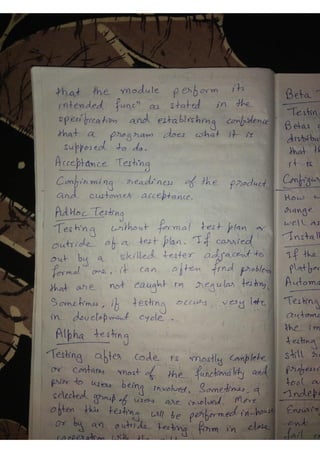 that the module perform its
intended funcⁿ as stated in the
specification and establishing confidence
that a program does what it is
supposed to do.
Acceptance Testing
Confirming readiness of the product
and customer acceptance.
AdHoc Testing
Testing without formal test plan or
outside of a test plan. If carried
out by a skilled tester adjacent to
formal one, it can often find problem
that are not caught in regular testing.
Sometimes, if testing occurs, very late
in development cycle.
Alpha testing
Testing after code is mostly complete
or contains most of the functionality and
prior to users being involved. Sometimes, a
selected group of users are involved. More
often this testing will be performed in-house
or by an outside testing firm in close
cooperation with the
Beta
Testin
Betas
distribu
that th
it is
Configur
How w
range
well as
Install
If the
platfor
Automa
Testing
automa
the im
testing
still
professi
tool a
Indep
Ensurin
and